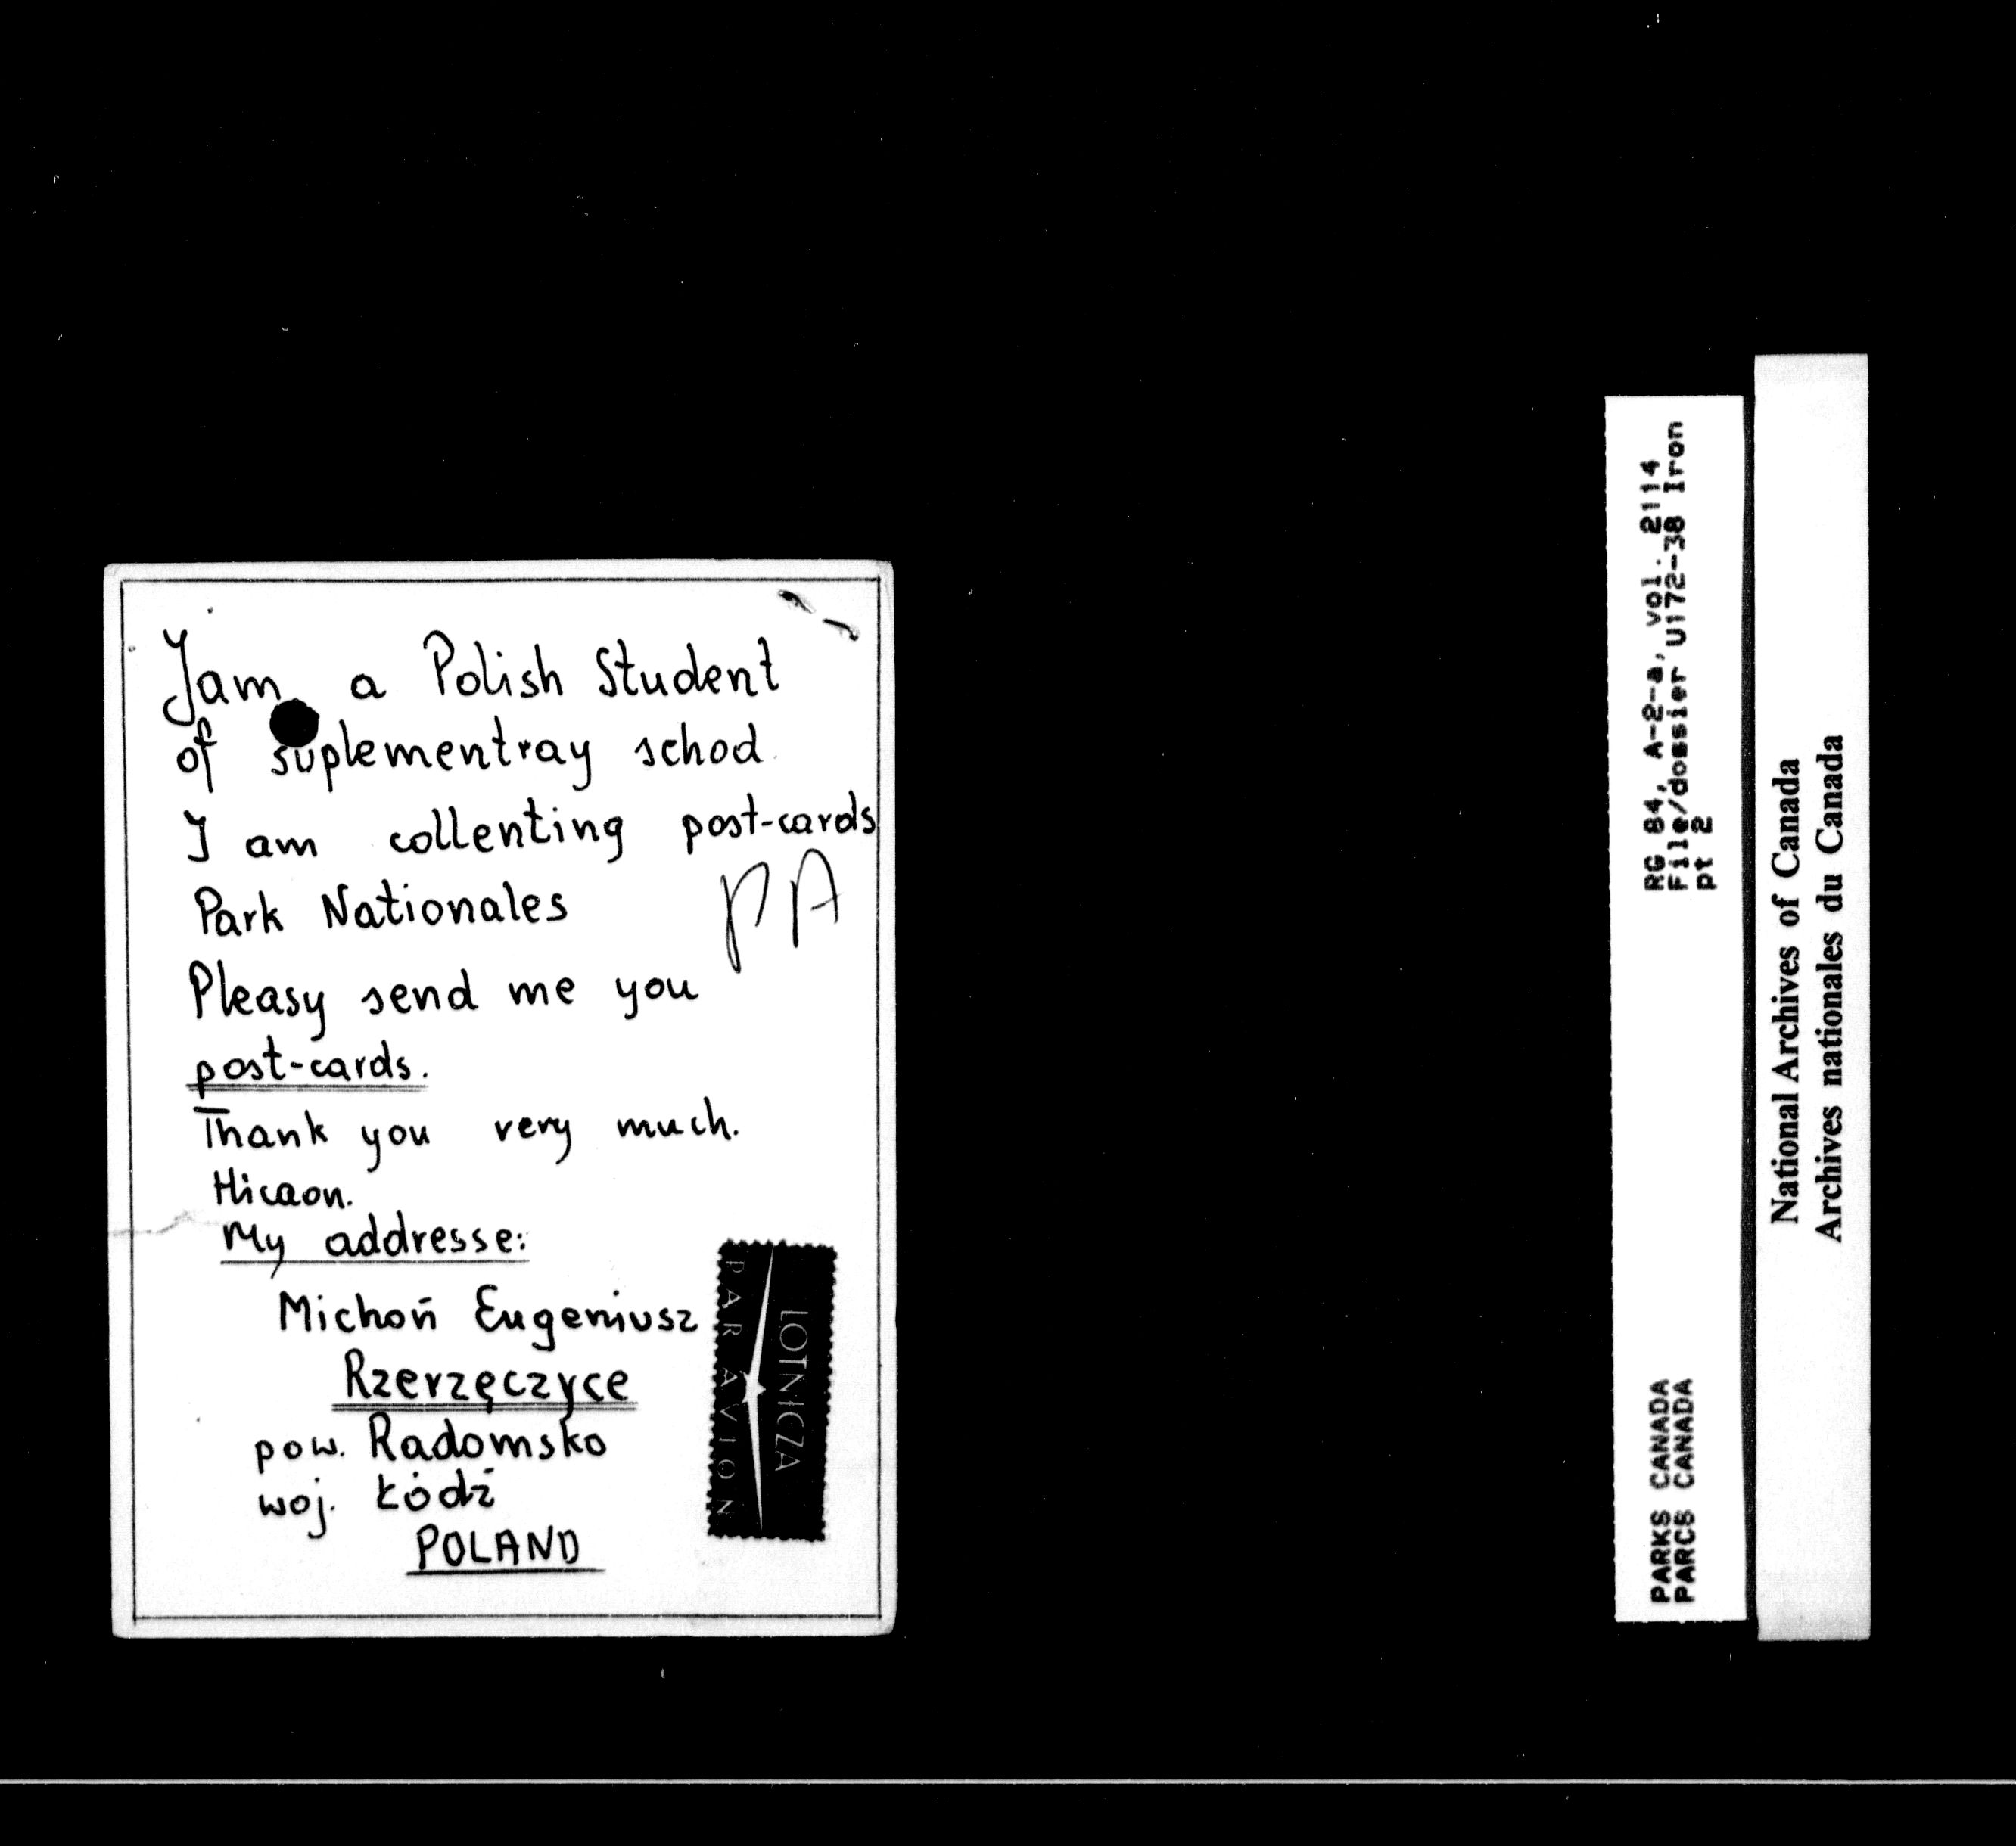 Jam a Polish Student
of suplementray schod
I am collenting post-cards
Park Nationales
PA
Pleasy send me you
post-cards.
Thank you very much.
Hicaon.
My addresse:
Michoń Eugeniusz
Rzerzęczyce
pow. Radomsko
woj. Łódź
POLAND
LOTNICZA
PAR AVION
RG 84, A-2-a, vol. 2114
File/dossier U172-38 Iron
pt 2
PARKS CANADA
PARCS CANADA
National Archives of Canada
Archives nationales du Canada